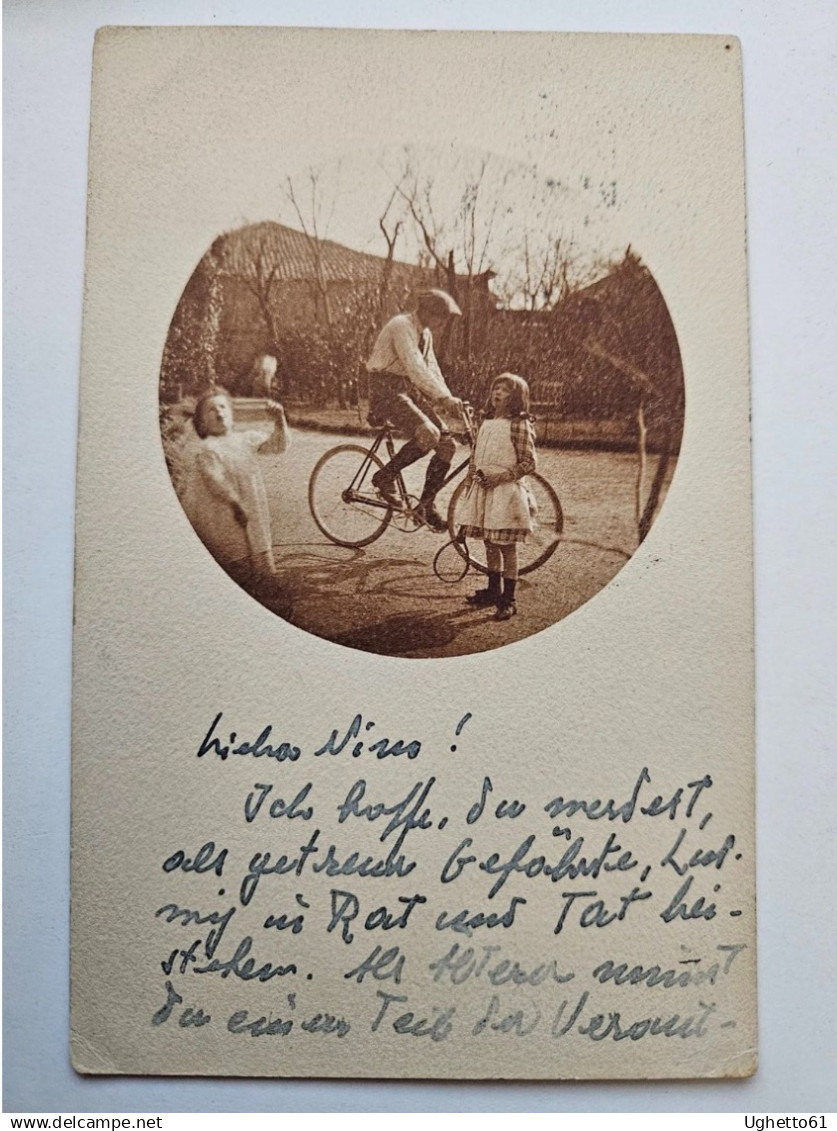 Lieber Nino!
Ich hoffe, du werdest,
als getreuer Gefährte, Lud-
mig in Rat und Tat bei-
stehen. Als Älterer nimmst
du einen Teil der Verant-
Ughetto61